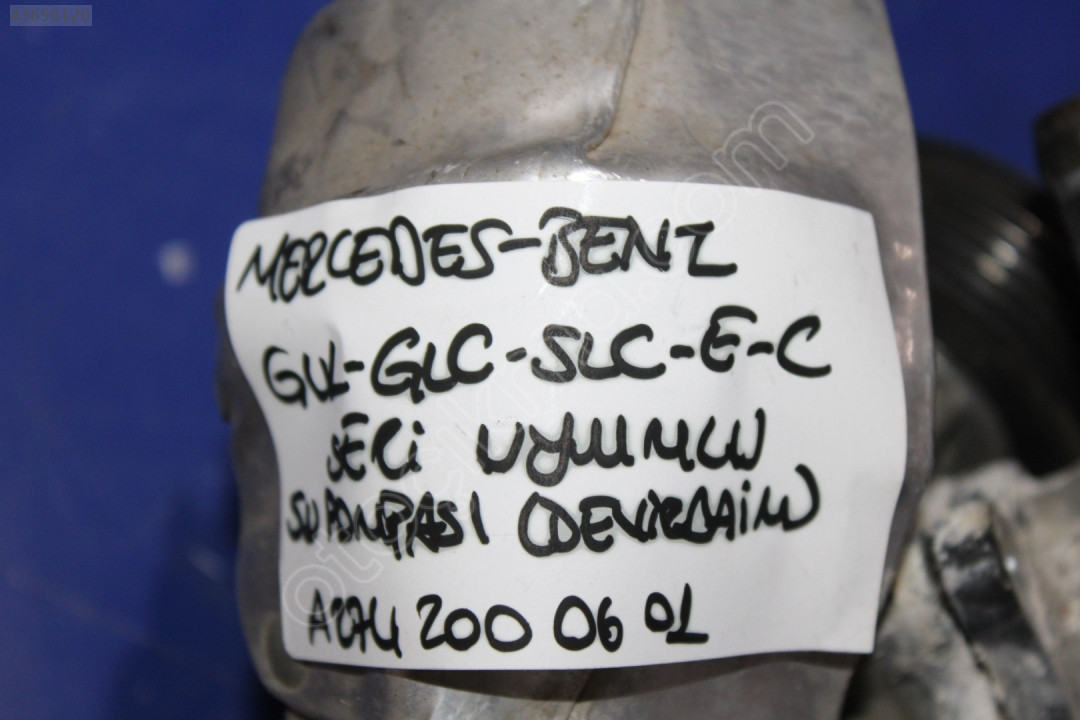 MERCEDES-BENZ
GLK-GLC-SLC-E-C
SERİ UYUMLU
SU POMPASI (DEVİRDAİM)
A274 200 06 01